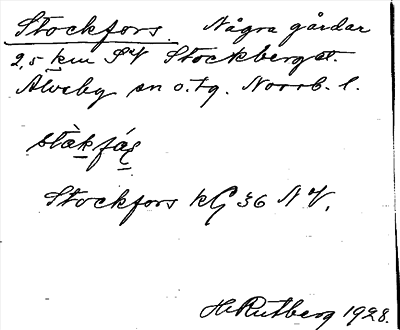 Stockfors. Några gårdar
2,5 km SV Stockberget.
Älvsby sn o. tg. Norrb. l.
Stockfors kG 36 NV.
H. Rutberg 1928.